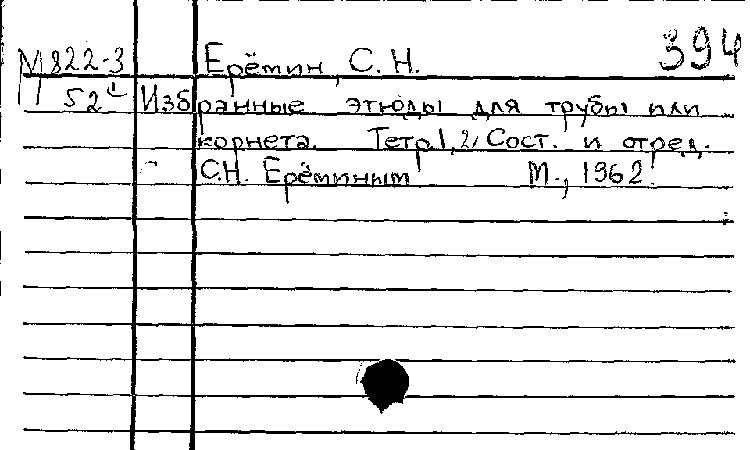 М822-3 Ерёмин, С. Н. 394
52¹ Избранные этюды для трубы или
корнета. Тетр.1,2, Сост. и отред.
С.Н. Ерёминым М., 1962.